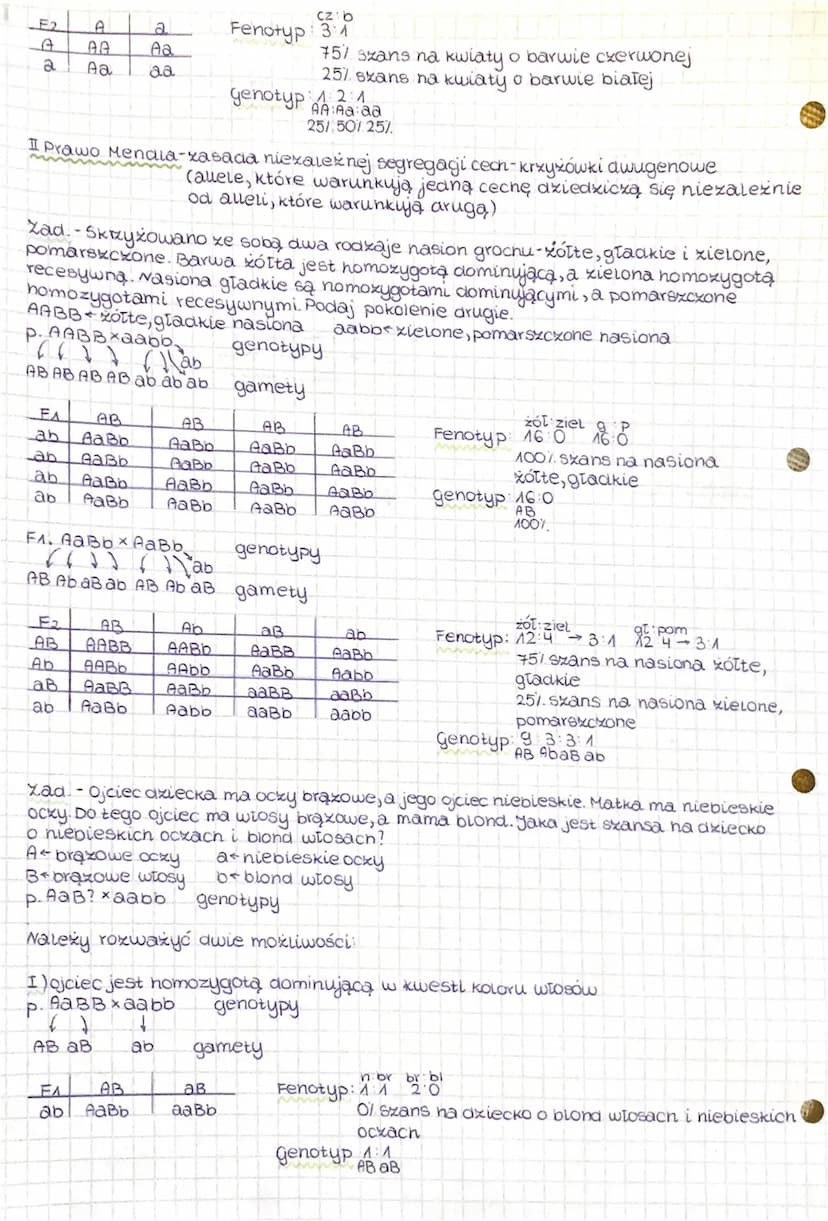 F2 A a
A AA Aa
a Aa aa
cz:b
Fenotyp: 3:1
75% szans na kwiaty o barwie czerwonej
25% szans na kwiaty o barwie białej
genotyp: 1:2:1
AA:Aa:aa
25% 50% 25%
II Prawo Mendla-zasada niezależnej segregacji cech-krzyżówki dwugenowe
(allele, które warunkują jedną cechę dziedziczą się niezależnie
od alleli, które warunkują drugą)
Zad.-Skrzyżowano ze sobą dwa rodzaje nasion grochu-żółte, gładkie i zielone,
pomarszczone. Barwa żółta jest homozygotą dominującą, a zielona homozygotą
recesywną. Nasiona gładkie są homozygotami dominującymi, a pomarszczone
homozygotami recesywnymi. Podaj pokolenie drugie.
AABB← żółte, gładkie nasiona aabb← zielone, pomarszczone nasiona
p. AABB×aabb genotypy
AB AB AB AB ab ab ab ab gamety
F1 AB AB AB AB
ab AaBb AaBb AaBb AaBb
ab AaBb AaBb AaBb AaBb
ab AaBb AaBb AaBb AaBb
ab AaBb AaBb AaBb AaBb
żół:ziel g:p
Fenotyp: 16:0 16:0
100% szans na nasiona
żółte, gładkie
genotyp: 16:0
AB
100%
F1. AaBb×AaBb genotypy
AB Ab aB ab AB Ab aB ab gamety
F2 AB Ab aB ab
AB AABB AABb AaBB AaBb
Ab AABb AAbb AaBb Aabb
aB AaBB AaBb aaBB aaBb
ab AaBb Aabb aaBb aabb
żół:ziel gł:pom
Fenotyp: 12:4 → 3:1 12:4→3:1
75% szans na nasiona żółte,
gładkie
25% szans na nasiona zielone,
pomarszczone
Genotyp: 9:3:3:1
AB Ab aB ab
Zad.- Ojciec dziecka ma oczy brązowe, a jego ojciec niebieskie. Matka ma niebieskie
oczy. Do tego ojciec ma włosy brązowe, a mama blond. Jaka jest szansa na dziecko
o niebieskich oczach i blond włosach?
A← brązowe oczy a← niebieskie oczy
B← brązowe włosy b← blond włosy
p. AaB?×aabb genotypy
Należy rozważyć dwie możliwości:
I) ojciec jest homozygotą dominującą w kwesti koloru włosów
p. AaBB×aabb genotypy
AB aB ab gamety
F1 AB aB
ab AaBb aaBb
n:br br:bl
Fenotyp: 1:1 2:0
0% szans na dziecko o blond włosach i niebieskich
oczach
Genotyp 1:1
AB aB